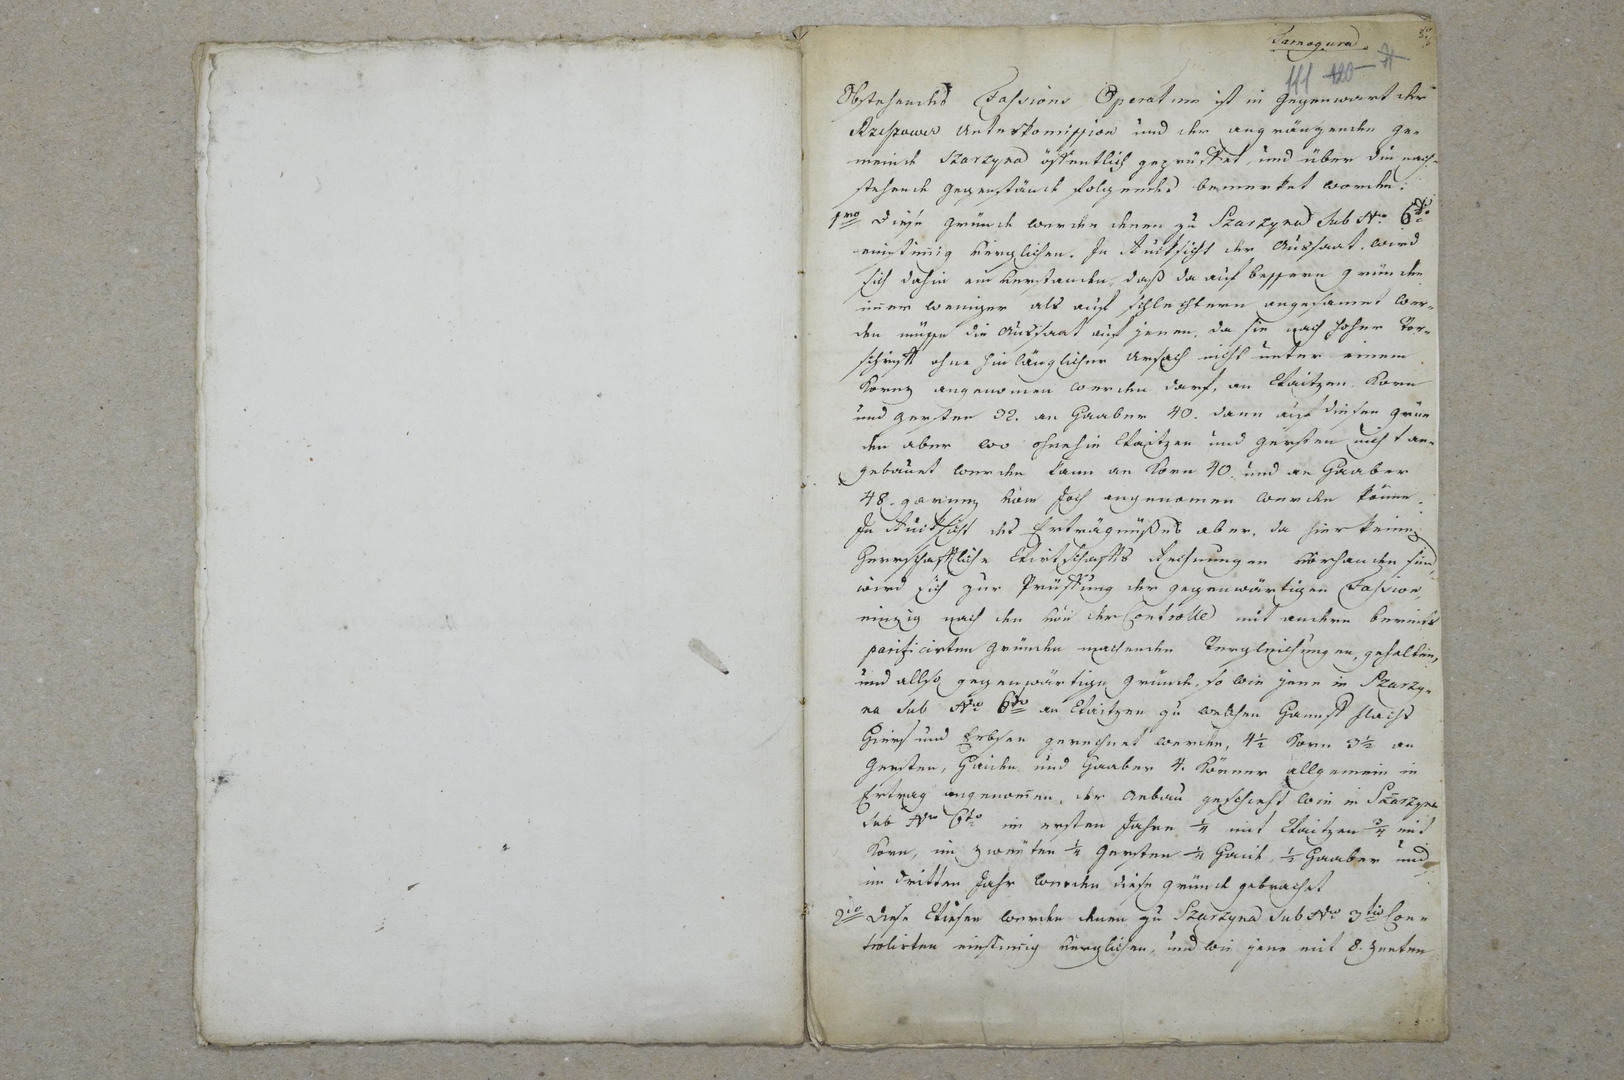 Tarnogura
111 120
Obstehendes Fassions Operatum ist in Gegenwart der
Rzeszower Unterkomission und der angränzenden Ge-
meinde Szarzyna öffentlich geprüffet und über die nach-
stehende Gegenstände folgendes bemerket worden.
1mo Diese Gründe werden denen zu Szarzyna sub No 6to
einstimig verglichen. In Rücksicht der Aussaat wird
sich dahin einverstanden, daß da auf bessern Gründen
imer weniger als auf schlechtern angesäamet wer-
den müsse die Aussaat auf jenen, da sie nach hoher Vor-
schrift ohne hinlänglicher Ursach nicht unter einem
Korez angenomen werden darf, an Waitzen Korn
und Gersten 32. an Haaber 40. dann auf diesen Grün
den aber wo ohnehin Waitzen und Gersten nicht an-
gebauet werden kann an Korn 40 und an Haaber
48. garnez vom Joch angenomen werden könne.
In Rücksicht des Erträgnüßes aber, da hier keine
Herrschaftliche Wirtschafts Rechnungen vorhanden sind,
wird sich zur Prüffung der gegenwärtigen Fassion,
einzig nach den von der Controlle mit andern bereits
parificirten Gründen machenden Vergleichungen, gehalten,
und allso gegenwärtige Gründe, so wie jene in Szarzy-
na sub No 6to an Waitzen zu welchen Hannf Flachs
Hiers und Erbsen gerechnet werden, 4½ Korn 3½ an
Gersten, Haiden und Haaber 4. Körner allgemein in
Ertrag angenomen, der Anbau geschieht wie in Szarzyna
sub No 6to im ersten Jahre ¼ mit Waitzen ¾ mit
Korn, im zweyten ¼ Gersten ¼ Haid, ½ Haaber und
im dritten Jahr werden diese Gründe gebrachet
2do Diese Wiesen werden denen zu Szarzyna sub No 3tio Con-
trolirten einstimig verglichen, und wie jene mit 8. Zenten